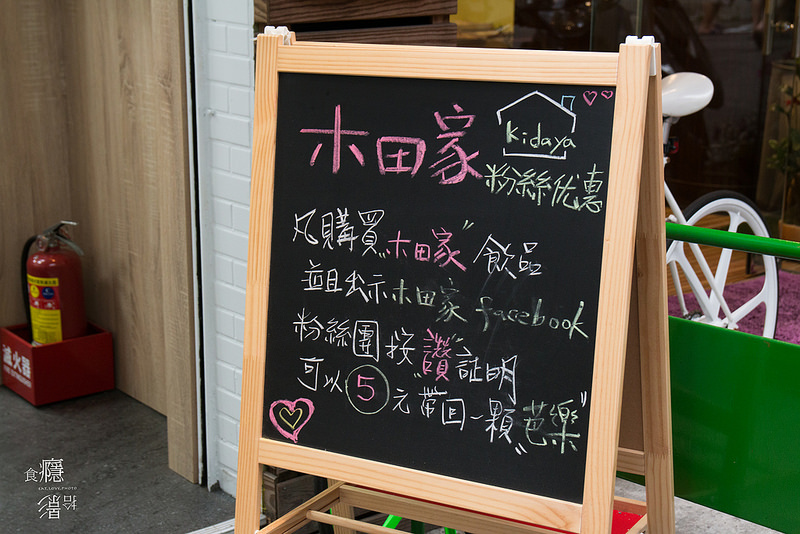 木田家
kidaya
粉絲优惠
凡購買"木田家"飲品
並且出示木田家 facebook
粉絲團按"讚"証明
可以5元帶回一顆"芭樂"
滅火器
食癮
EAT.LOVE.PHOTO
拾影